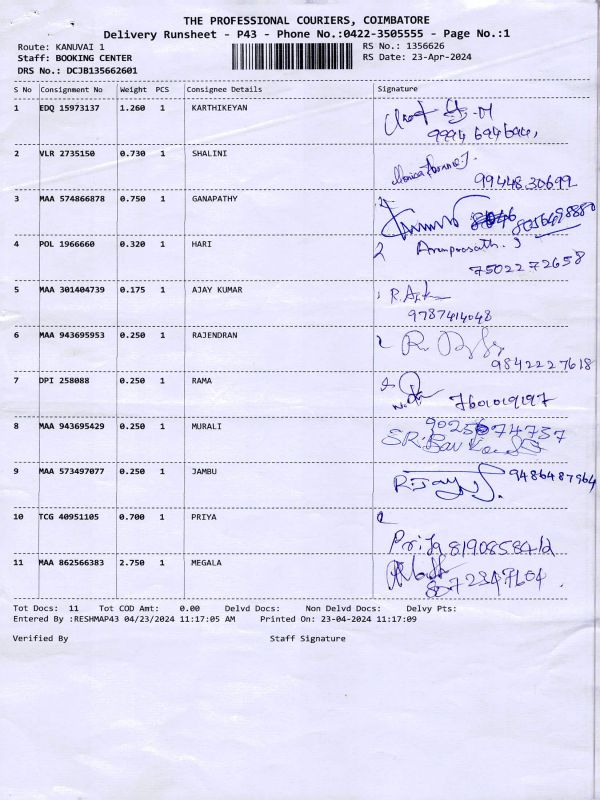 THE PROFESSIONAL COURIERS, COIMBATORE
Delivery Runsheet - P43 - Phone No.:0422-3505555 - Page No.:1
Route: KANUVAI 1 RS No.: 1356626
Staff: BOOKING CENTER RS Date: 23-Apr-2024
DRS No.: DCJB135662601
S No Consignment No Weight PCS Consignee Details Signature
1 EDQ 15973137 1.260 1 KARTHIKEYAN
9994 694694,
2 VLR 2735150 0.730 1 SHALINI
99448 30699
3 MAA 574866878 0.750 1 GANAPATHY
8056498880
4 POL 1966660 0.320 1 HARI Arunprasath. J
75022 72658
5 MAA 301404739 0.175 1 AJAY KUMAR
9787414048
6 MAA 943695953 0.250 1 RAJENDRAN
9842227618
7 DPI 258088 0.250 1 RAMA
7601019197
8 MAA 943695429 0.250 1 MURALI
9 MAA 573497077 0.250 1 JAMBU R.Jay 9486487964
10 TCG 40951105 0.700 1 PRIYA
Priya
11 MAA 862566383 2.750 1 MEGALA
Tot Docs: 11 Tot COD Amt: 0.00 Delvd Docs: Non Delvd Docs: Delvy Pts:
Entered By :RESHMAP43 04/23/2024 11:17:05 AM Printed On: 23-04-2024 11:17:09
Verified By Staff Signature